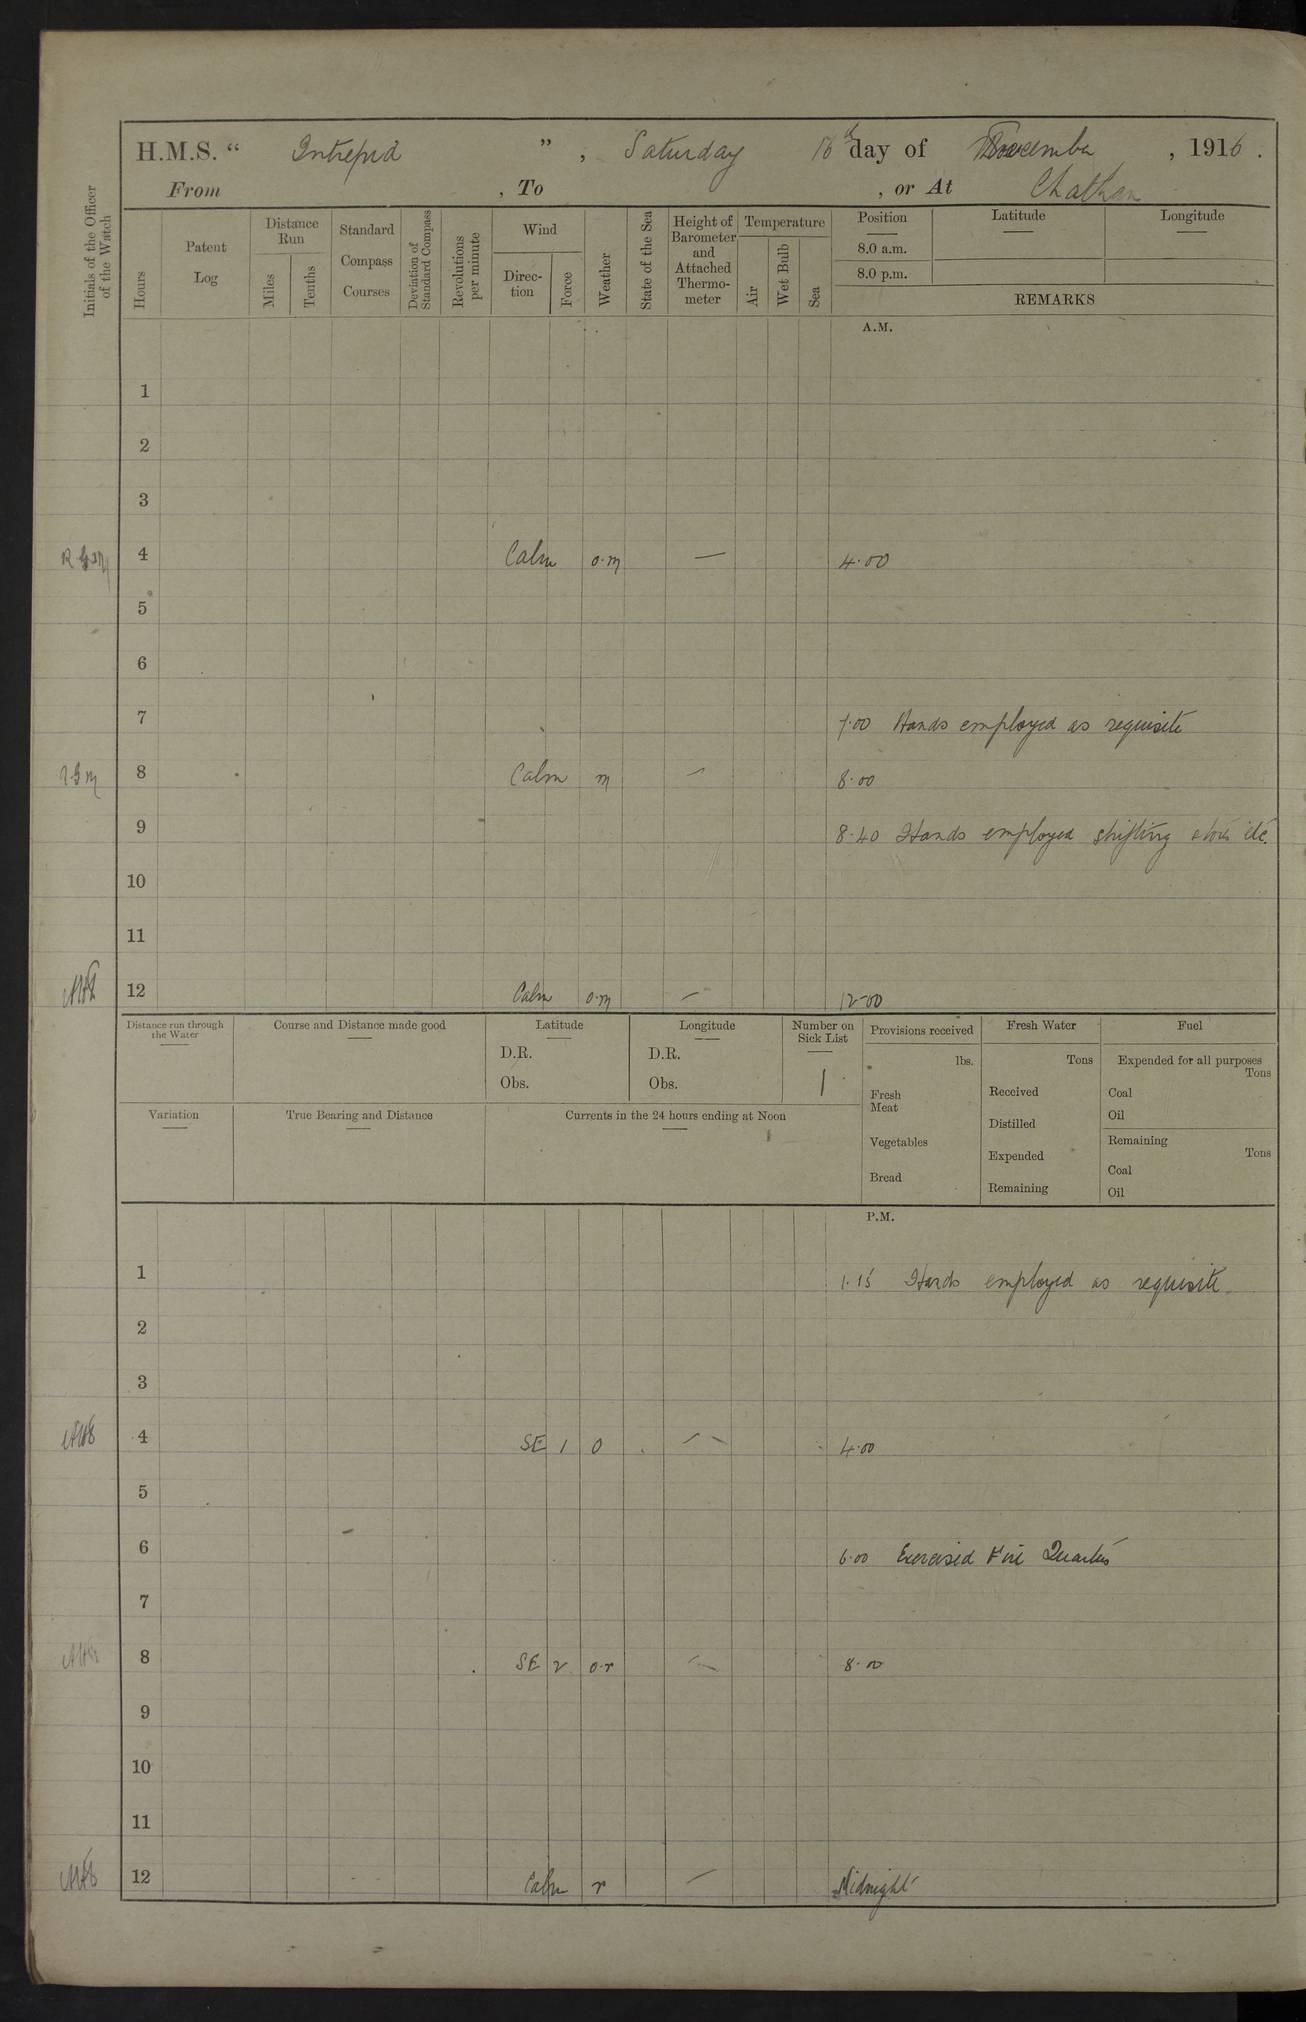 H.M.S. “ Intrepid ”, Saturday 16th day of , 1916.
From , To , or At Chatham
Initials of the Officer of the Watch
Hours
Patent Log
Distance Run
Miles
Tenths
Standard Compass Courses
Deviation of Standard Compass
Revolutions per minute
Wind
Direc-tion
Force
Weather
State of the Sea
Height of Barometer and Attached Thermo-meter
Temperature
Air
Wet Bulb
Sea
Position
8.0 a.m.
8.0 p.m.
Latitude
Longitude
REMARKS
A.M.
1
2
3
4 Calm o.m — 4.00
5
6
7 7.00 Hands employed as requisite
8 Calm m — 8.00
9 8.40 Hands employed shifting stores etc.
10
11
12 Calm o.m — 12.00
Distance run through the Water
Course and Distance made good
Latitude
D.R.
Obs.
Longitude
D.R.
Obs.
Number on Sick List
1
Provisions received
lbs.
Fresh Meat
Vegetables
Bread
Fresh Water
Tons
Received
Distilled
Expended
Remaining
Fuel
Expended for all purposes
Tons
Coal
Oil
Remaining
Tons
Coal
Oil
Variation
True Bearing and Distance
Currents in the 24 hours ending at Noon
P.M.
1 1.15 Hands employed as requisite
2
3
4 SE 1 o — 4.00
5
6 6.00 Exercised Fire Quarters
7
8 SE 2 o.r — 8.00
9
10
11
12 Calm r — Midnight